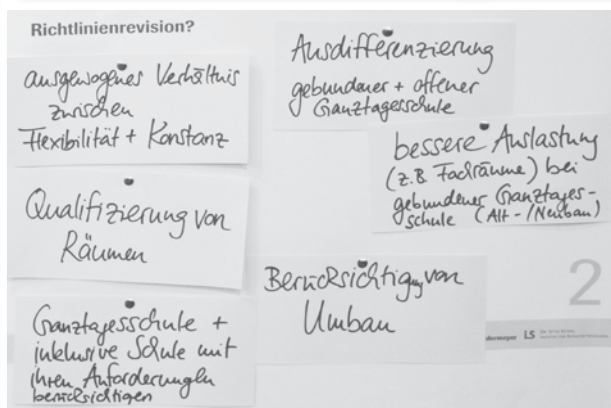 Richtlinienrevision?
ausgewogenes Verhältnis
zwischen
Flexibilität + Konstanz
Qualifizierung von
Räumen
Ganztagesschule +
inklusive Schule mit
ihren Anforderungen
berücksichtigen
Ausdifferenzierung
gebundener + offener
Ganztagesschule
bessere Auslastung
(z.B. Fachräume) bei
gebundener Ganztages-
schule (Alt-/Neubau)
Berücksichtigung von
Umbau
2
dermeyer LS